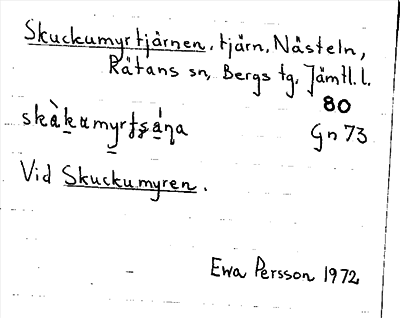 Skuckumyrtjärnen, tjärn, Nästeln,
Rätans sn, Bergs tg, Jämtl. l.
80
skàkamyrtʂána Gn 73
Vid Skuckumyren.
Ewa Persson 1972